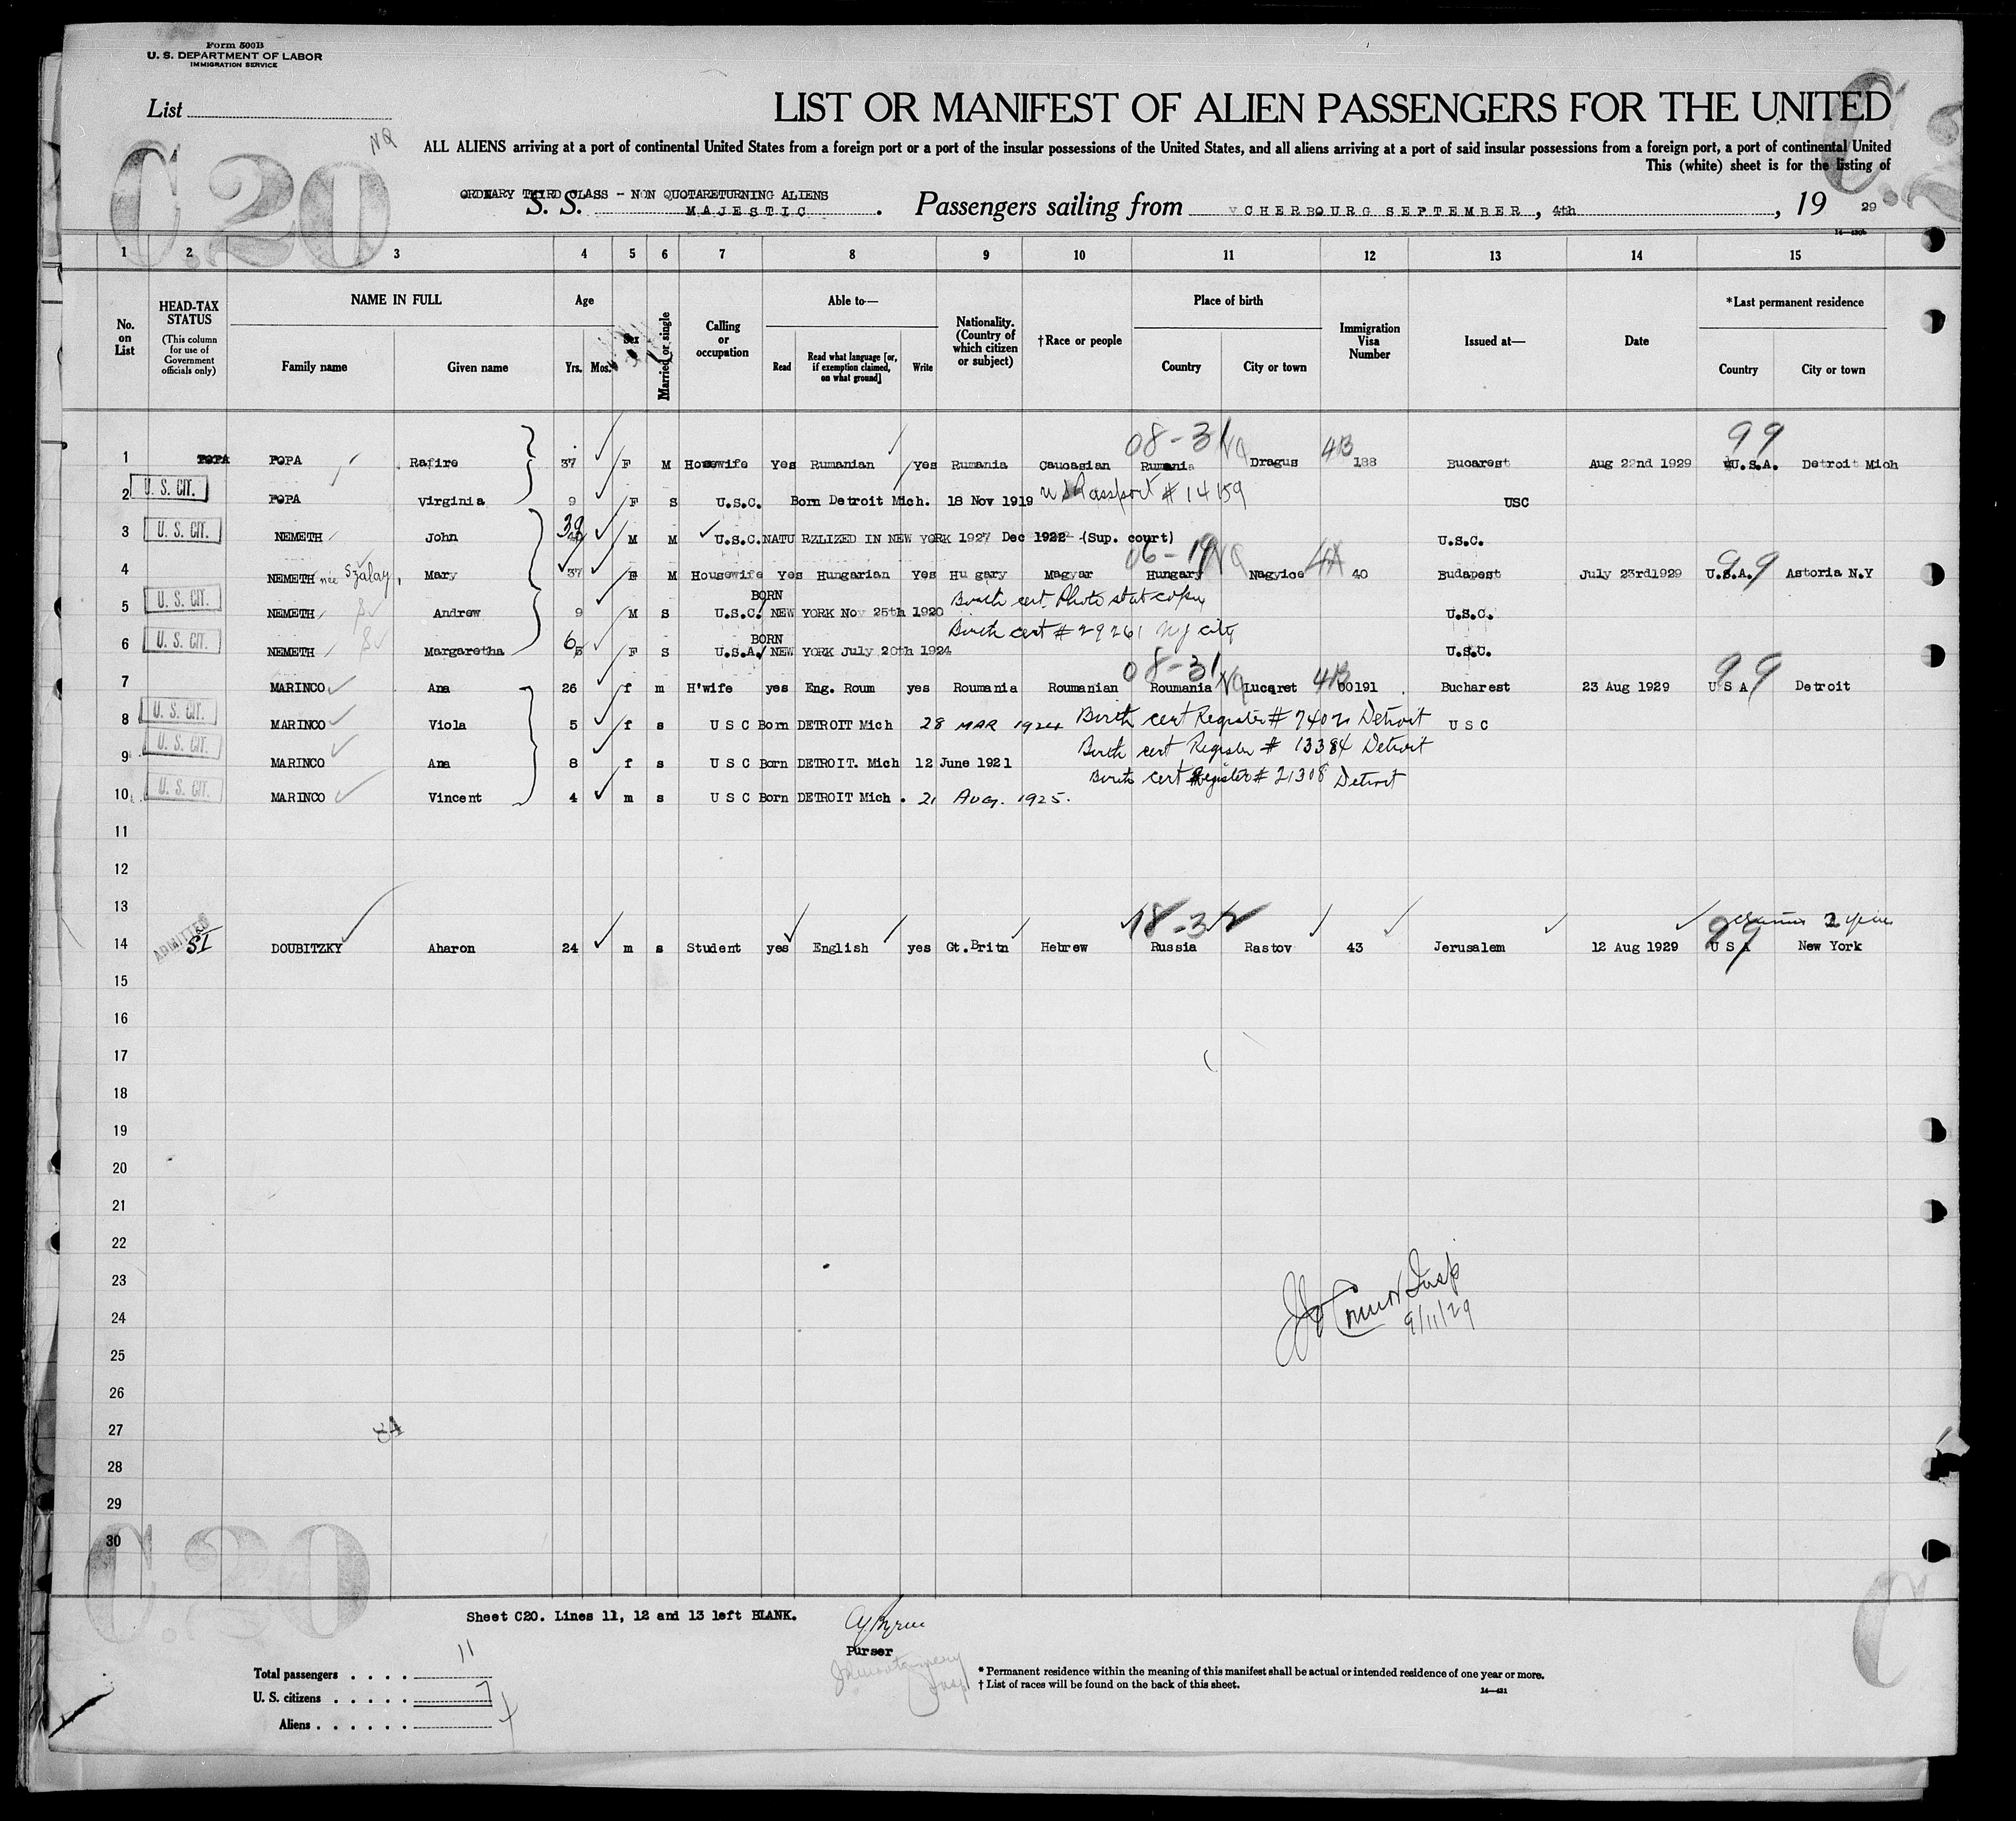 Form 500B
U. S. DEPARTMENT OF LABOR
IMMIGRATION SERVICE
List
NQ
C.20
LIST OR MANIFEST OF ALIEN PASSENGERS FOR THE UNITED
ALL ALIENS arriving at a port of continental United States from a foreign port or a port of the insular possessions of the United States, and all aliens arriving at a port of said insular possessions from a foreign port, a port of continental United
This (white) sheet is for the listing of
ORDNARY THIRD CLASS - NON QUOTARETURNING ALIENS
S. S. MAJESTIC. Passengers sailing from CHERBOURG SEPTEMBER, 4th, 19 29
1 2 3 4 5 6 7 8 9 10 11 12 13 14 15
No. on List
HEAD-TAX STATUS (This column for use of Government officials only)
NAME IN FULL Family name Given name
Age Yrs. Mos.
Sex
Married or single
Calling or occupation
Able to— Read Read what language [or, if exemption claimed, on what ground] Write
Nationality. (Country of which citizen or subject)
†Race or people
Place of birth Country City or town
Immigration Visa Number
Issued at—
Date
*Last permanent residence Country City or town
08-31 NQ 4B 99
1 POPA POPA Rafire 37 F M Housewife Yes Rumanian Yes Rumania Caucasian Rumania Dragus 188 Bucarest Aug 22nd 1929 U.S.A. Detroit Mich
2 U. S. CIT. POPA Virginia 9 F S U.S.C. Born Detroit Mich. 18 Nov 1919 US Passport # 14159 USC
3 U. S. CIT. NEMETH John 39 M M U.S.C. NATU RZLIZED IN NEW YORK 1927 Dec 1922 (Sup. court) U.S.C.
06-19 NQ 4A 99
4 NEMETH née Szalay, Mary 37 F M Housewife Yes Hungarian Yes Hu gary Magyar Hungary Nagyice 40 Budapest July 23rd1929 U.S.A. Astoria N.Y
5 U. S. CIT. NEMETH Andrew 9 M S U.S.C. BORN NEW YORK Nov 25th 1920 Birth cert. Photo stat copy U.S.C.
6 U. S. CIT. NEMETH Margaretha 6 F S U.S.A. BORN NEW YORK July 20th 1924 Birth cert # 29261 NY city U.S.C.
08-31 NQ 4B 99
7 MARINCO Ana 26 f m H'wife yes Eng. Roum yes Roumania Roumanian Roumania Lucaret 00191 Bucharest 23 Aug 1929 U S A Detroit
8 U. S. CIT. MARINCO Viola 5 f s U S C Born DETROIT Mich 28 MAR 1924 Birth cert Register # 7402 Detroit U S C
9 U. S. CIT. MARINCO Ana 8 f s U S C Born DETROIT. Mich 12 June 1921 Birth cert Register # 13384 Detroit
10 U. S. CIT. MARINCO Vincent 4 m s U S C Born DETROIT Mich . 21 Aug. 1925. Birth cert Register # 21308 Detroit
11
12
13
18-32 99 2 years
14 ADMITTED SI DOUBITZKY Aharon 24 m s Student yes English yes Gt.Britn Hebrew Russia Rastov 43 Jerusalem 12 Aug 1929 U S A New York
15
16
17
18
19
20
21
22
23
24
25
26
27
28
29
30
Insp
9/11/29
84
C.20
Sheet C20. Lines 11, 12 and 13 left BLANK.
Purser
Total passengers . . . . 11
U. S. citizens . . . . . 7
Aliens . . . . . . 4
* Permanent residence within the meaning of this manifest shall be actual or intended residence of one year or more.
† List of races will be found on the back of this sheet.
14—431